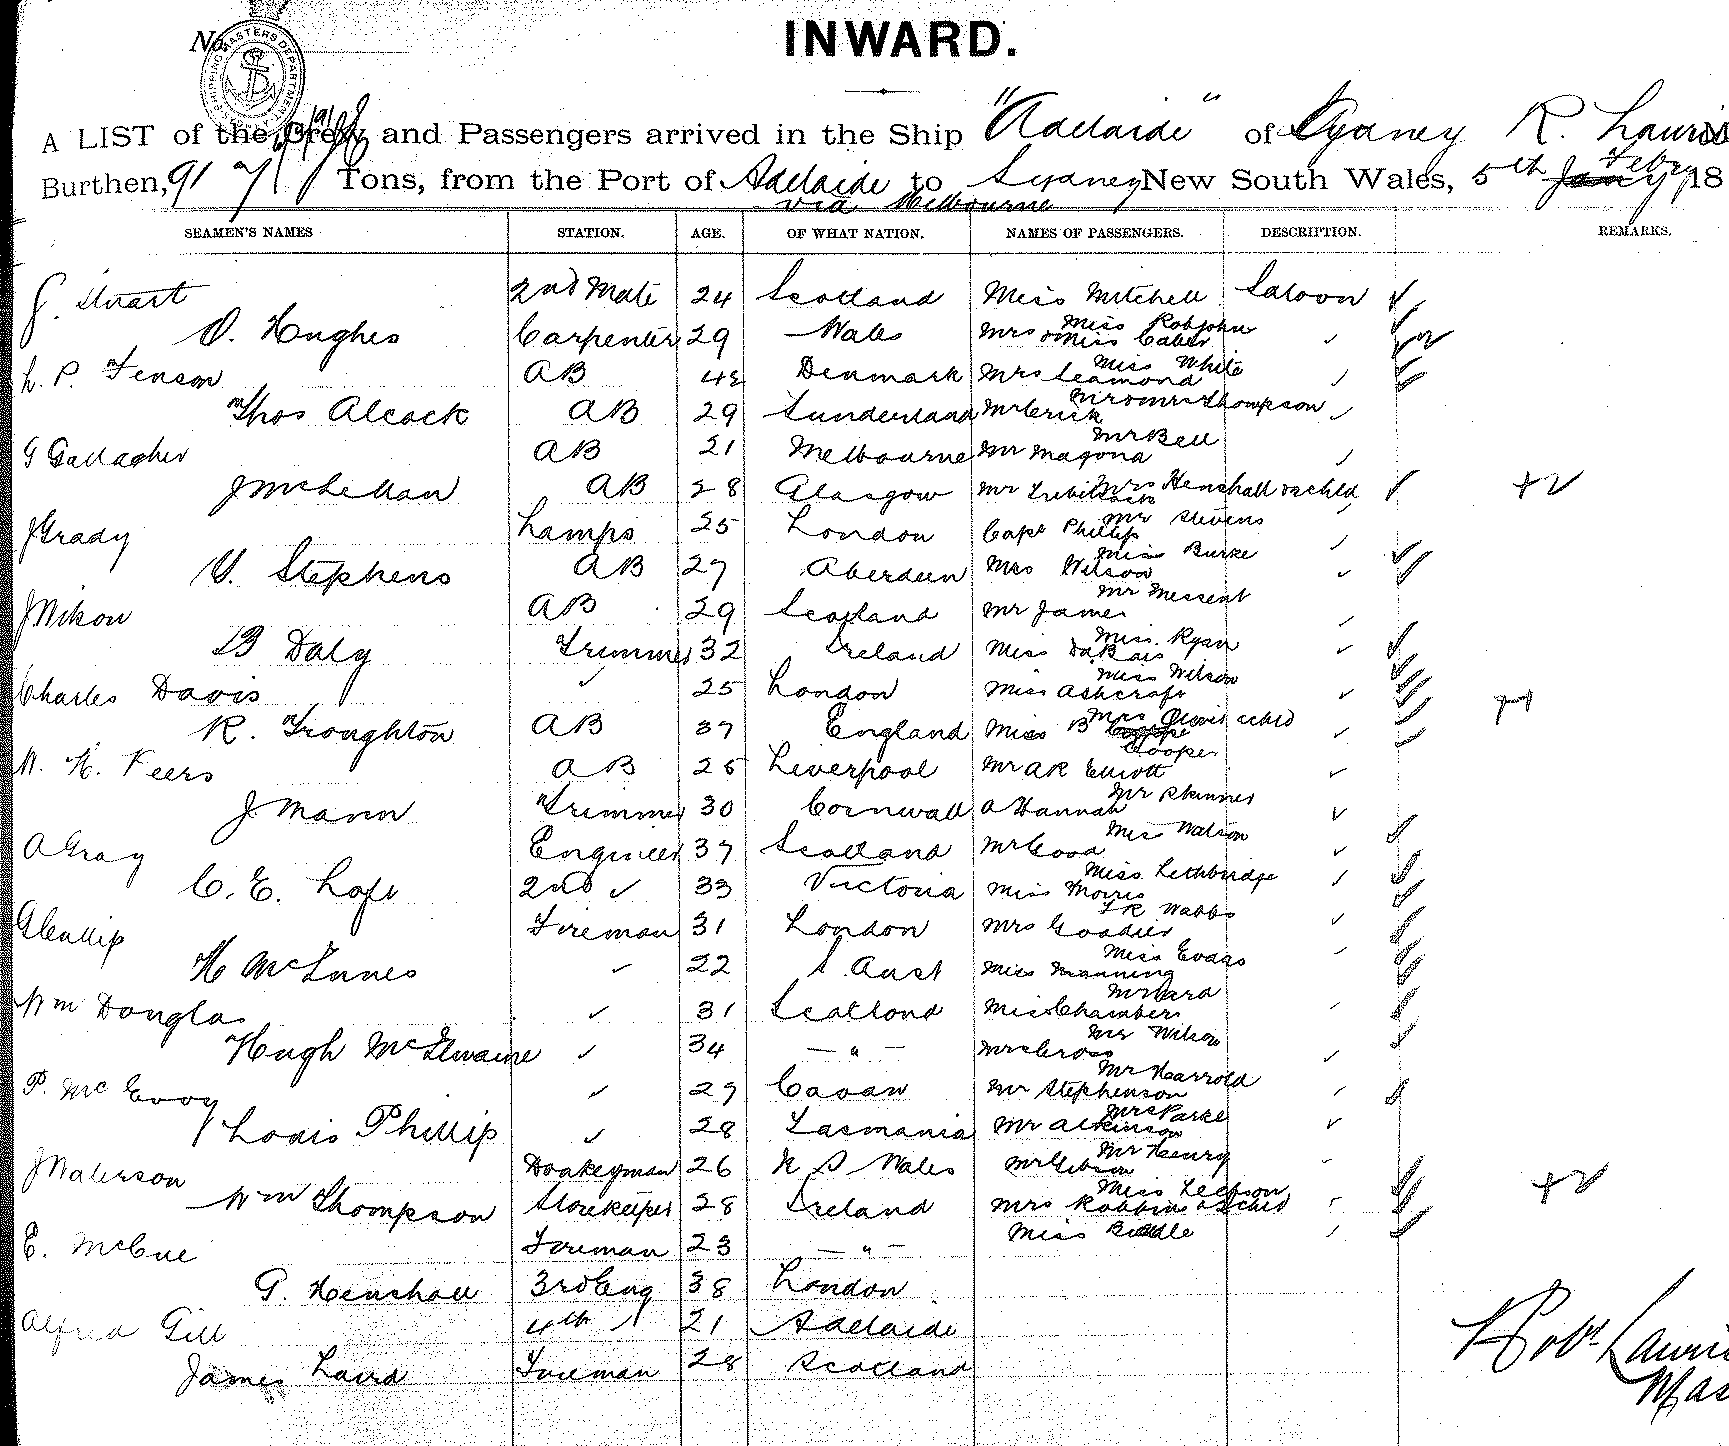 No.
SHIPPING MASTERS DEPARTMENT
INWARD.
A LIST of the Crew and Passengers arrived in the Ship "Adelaide" of Sydney R. Lawrie
Burthen, 917 Tons, from the Port of Adelaide to Sydney New South Wales, 5th Feby 18
via Melbourne
SEAMEN'S NAMES STATION. AGE. OF WHAT NATION. NAMES OF PASSENGERS. DESCRIPTION. REMARKS.
J. Stuart 2nd Mate 24 Scotland Miss Mitchell Saloon
Miss Robjohn
O. Hughes Carpenter 29 Wales Mrs & Miss
Miss White
L. P. Jenson AB 42 Denmark Mrs Leamond
Mr & Mrs Thompson
Thos Alcock AB 29 Sunderland Mr Crick
Mr Bell
G Gallagher AB 21 Melbourne Mr Magona
Mrs Henshall & chld
J McLellan AB 28 Glasgow Mr
Mr Stevens
J Grady Lamps 25 London Capt Phillip
Miss Burke
V. Stephens AB 27 Aberdeen Mrs Wilson
Mr Messent
J Nikon AB 29 Scotland Mr James
Miss Ryan
B Daly Trimmer 32 Ireland Miss
Miss Wilson
Charles Davis ✓ 25 London Miss Ashcroft
Mrs & chld
R. Troughton AB 37 England Miss B
Cooper
W. H. Feers AB 25 Liverpool Mr AR Elliott
Mr Skinner
J Mann Trimmer 30 Cornwall A Hannah
Miss Watson
A Gray Engineer 37 Scotland Mr Good
Miss Lethbridge
C. E. Loft 2nd ✓ 33 Victoria Miss Morris
Wabbs
Fireman 31 London Mrs Goodier
Miss Evans
H McInnes ✓ 22 S. Aust Miss Manning
Mr Ward
Wm Douglas ✓ 31 Scotland Miss Chambers
Mr Wilson
Hugh McIlwaine ✓ 34 — " — Mrs Cross
Mr Harrold
P. McEvoy ✓ 27 Cavan Mr Stephenson
Mrs Parke
Louis Phillip ✓ 28 Tasmania Mr Atkinson
Mr Henry
J Waterson Donkeyman 26 N S Wales Mr Gibson
Miss
Wm Thompson Storekeeper 28 Ireland Mrs Robbins & 2 chld
E. McCue Fireman 23 — " — Miss
G. Henshall 3rd Eng 38 London
Alfred Gill 4th 21 Adelaide
James Laird Fireman 28 Scotland
Robt. Lawrie
Mas